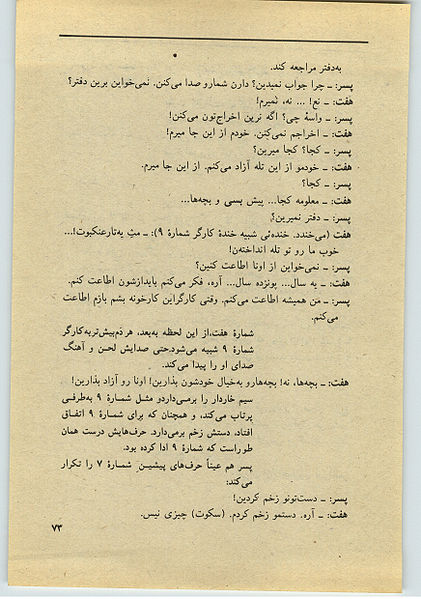 به‌دفتر مراجعه کند.
پسر: ـ چرا جواب نمیدین؟ دارن شمارو صدا می‌کنن. نمی‌خواین برین دفتر؟
هفت: ـ نع! ... نه، نمیرم!
پسر: ـ واسهٔ چی؟ اگه نرین اخراج‌تون می‌کنن!
هفت: ـ اخراجم نمی‌کنن. خودم از این جا میرم!
پسر: ـ کجا؟ کجا میرین؟
هفت: ـ خودمو از این تله آزاد می‌کنم. از این جا میرم.
پسر: ـ کجا؟
هفت: ـ معلومه کجا... پیش بسی و بچه‌ها...
پسر: ـ دفتر نمیرین؟
هفت (می‌خندد. خنده‌ئی شبیه خندهٔ کارگر شمارهٔ ۹): ـ مثِ یه‌تارعنکبوت!...
خوب ما رو تو تله انداخته‌ن!
پسر: ـ نمی‌خواین از اونا اطاعت کنین؟
هفت: ـ یه سال... پونزده سال... آره، فکر می‌کنم بایدازشون اطاعت کنم.
پسر: ـ من همیشه اطاعت می‌کنم. وقتی کارگراین کارخونه بشم بازم اطاعت
می‌کنم.
شمارهٔ هفت، از این لحظه به‌بعد، هردَم‌بیش‌تربه‌کارگر
شمارهٔ ۹ شبیه می‌شود. حتی صدایش لحن و آهنگ
صدای او را پیدا می‌کند.
هفت: ـ بچه‌ها، نه! بچه‌هارو به‌خیال خودشون بذارین! اونا رو آزاد بذارین!
سیم خاردار را برمی‌داردو مثل شمارهٔ ۹ به‌طرفی
پرتاب می‌کند، و همچنان که برای شمارهٔ ۹ اتفاق
افتاد، دستش زخم برمی‌دارد. حرف‌هایش درست همان
طوراست که شمارهٔ ۹ ادا کرده بود.
پسر هم عیناً حرف‌های پیشین شمارهٔ ۷ را تکرار
می‌کند:
پسر: ـ دست‌تونو زخم کردین!
هفت: ـ آره. دستمو زخم کردم. (سکوت) چیزی نیس.
۷۳